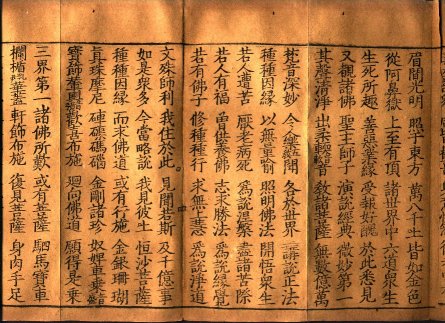 眉間光明 照于東方 萬八千土 皆如金色
從阿鼻獄 上至有頂 諸世界中 六道衆生
生死所趣 善惡業緣 受報好醜 於此悉見
又觀諸佛 聖主師子 演說經典 微妙第一
其聲清淨 出柔軟音 教諸菩薩 無數億萬
梵音深妙 令人樂聞 各於世界 講說正法
種種因緣 以無量喻 照明佛法 開悟衆生
若人遭苦 厭老病死 爲說涅槃 盡諸苦際
若人有福 曾供養佛 志求勝法 爲說緣覺
若有佛子 修種種行 求無上慧 爲說淨道
文殊師利 我住於此 見聞若斯 及千億事
如是衆多 今當略說 我見彼土 恒沙菩薩
種種因緣 而求佛道 或有行施 金銀珊瑚
真珠摩尼 硨磲碼碯 金剛諸珍 奴婢車乘
寶飾輦輿 歡喜布施 迴向佛道 願得是乘
三界第一 諸佛所歎 或有菩薩 駟馬寶車
欄楯華蓋 軒飾布施 復見菩薩 身肉手足